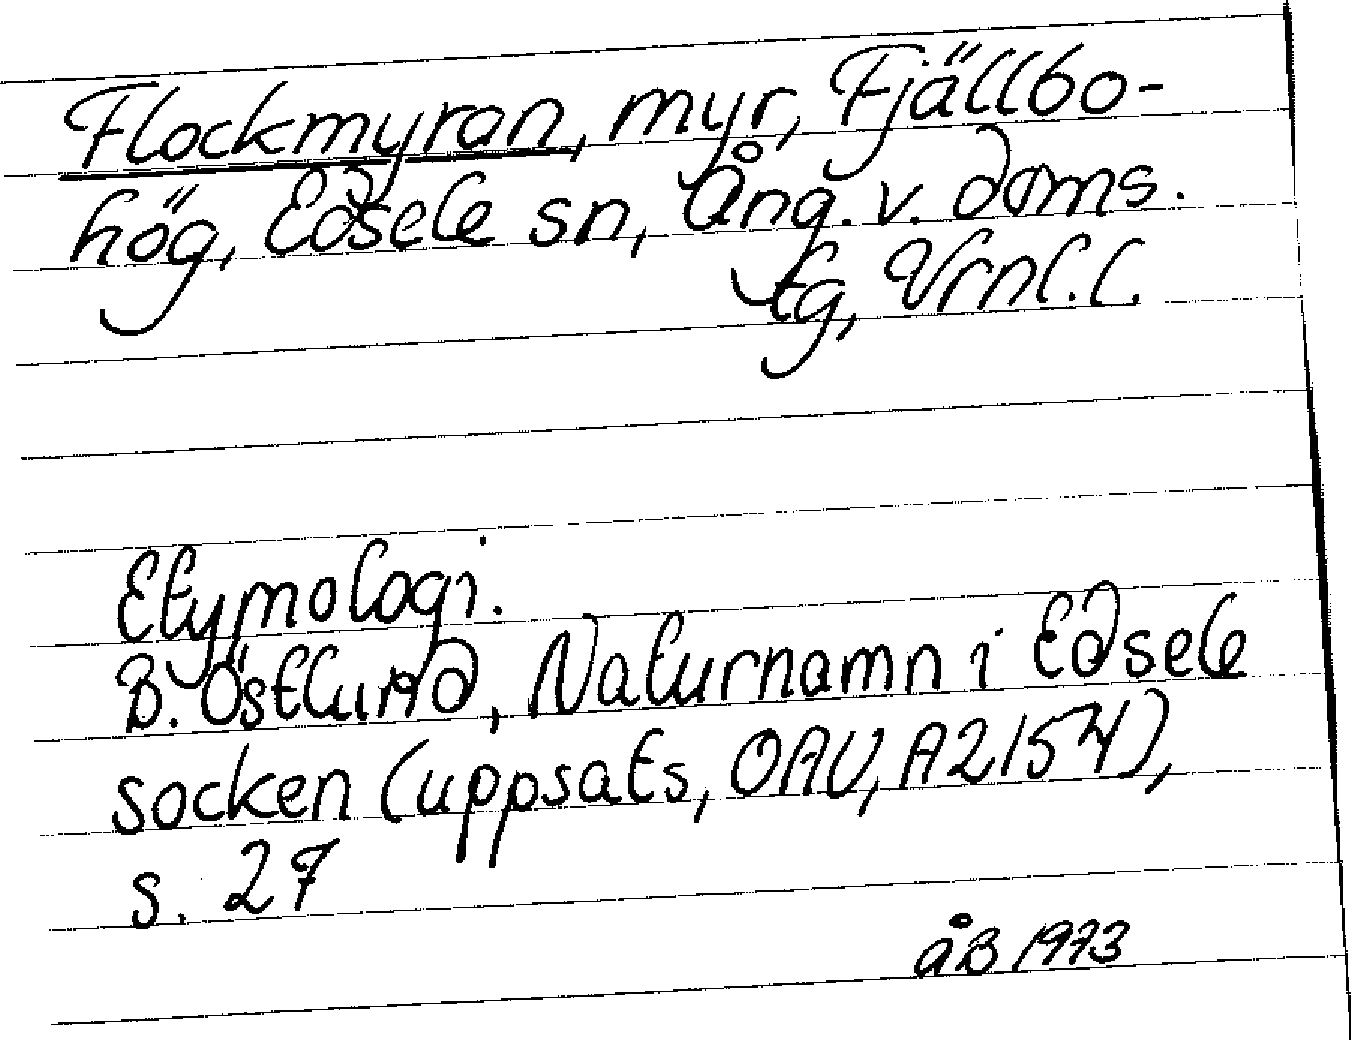 Flockmyran, myr, Fjällbo-
hög, Edsele sn, Ång. v. doms.
tg, Vrnl. l.
Etymologi.
B. Östlund, Naturnamn i Edsele
socken (uppsats, OAU, A2154),
s. 27
åB 1973